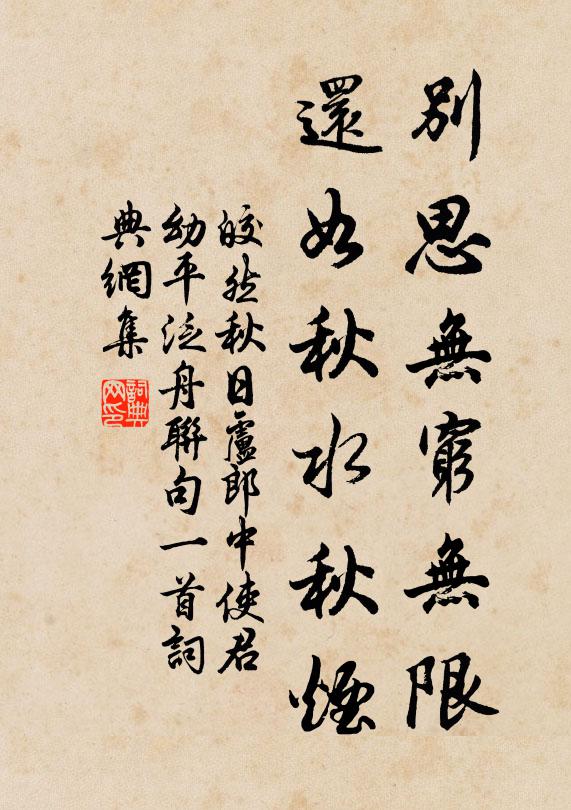 別思無窮無限
還如秋水秋煙
皎然秋日盧郎中使君
幼平泛舟聯句一首詞
典網集
詞典
网印